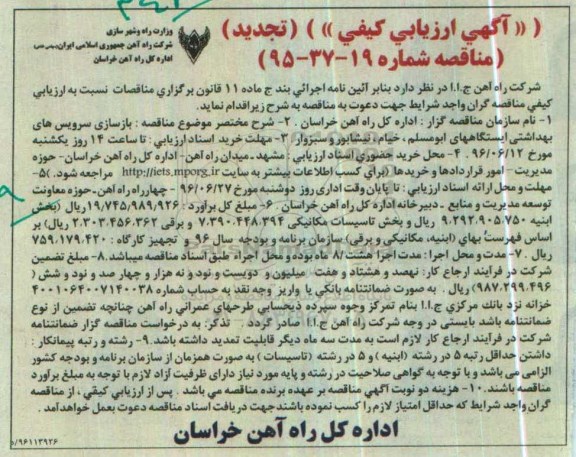 («آگهي ارزيابي كيفي») (تجديد)
(مناقصه شماره ۱۹-۳۷-۹۵)
وزارت راه وشهر سازی
شرکت راه آهن جمهوری اسلامی ایران(سهامی خاص)
اداره کل راه آهن خراسان
شرکت راه آهن ج.ا.ا در نظر دارد بنابر آئین نامه اجرائي بند ج ماده ۱۱ قانون برگزاري مناقصات نسبت به ارزیابي
کیفي مناقصه گران واجد شرایط جهت دعوت به مناقصه به شرح زیر اقدام نماید.
۱- نام سازمان مناقصه گزار : اداره کل راه آهن خراسان . ۲- شرح مختصر موضوع مناقصه : بازسازی سرویس های
بهداشتی ایستگاههای ابومسلم ، خیام ، نیشابور و سبزوار ۳- مهلت خرید اسناد ارزیابی : تا ساعت ۱۴ روز یکشنبه
مورخ ۹۶/۰۶/۱۲ . ۴- محل خرید حضوري اسناد ارزیابي : مشهد ـ میدان راه آهن- اداره کل راه آهن خراسان- حوزه
مدیریت - امور قراردادها و خریدها (برای کسب اطلاعات بیشتر به سایت http://iets.mporg.ir مراجعه شود.)۵-
مهلت و محل ارائه اسناد ارزیابي : تا پایان وقت اداری روز دوشنبه مورخ ۹۶/۰۶/۲۷ - چهارراه راه آهن ـ حوزه معاونت
توسعه مدیریت و منابع ـ دبیرخانه اداره کل راه آهن خراسان . ۶- مبلغ کل برآورد : ۱۹,۷۴۵,۹۸۹,۹۲۶ ریال (بخش
ابنیه ۹,۲۹۲,۹۰۵,۷۵۰ ریال و بخش تاسیسات مکانیکی ۷,۳۹۰,۴۴۸,۳۹۴ و برقی ۲,۳۰۳,۴۵۶,۳۶۲ ریال) بر
اساس فهرست بهای (ابنیه، مکانیکی و برقی) سازمان برنامه و بودجه سال ۹۶ و تجهیز کارگاه : ۷۵۹,۱۷۹,۴۲۰
ریال ۷- مدت و محل اجرا : مدت اجرا هشت/۸ ماه بوده و محل اجراء طبق اسناد مناقصه میباشد . ۸- مبلغ تضمین
شرکت در فرایند ارجاع کار : نهصد و هشتاد و هفت میلیون و دویست و نود و نه هزار و چهار صد و نود و شش (
۹۸۷,۲۹۹,۴۹۶) ریال . به صورت ضمانتنامه بانکی یا واریز وجه نقد به حساب شماره ۴۰۰۱۰۶۴۰۰۷۱۴۰۰۳۸
خزانه نزد بانك مركزي ج.ا.ا بنام تمرکز وجوه سپرده ذیحسابي طرحهاي عمراني راه آهن چنانچه تضمین از نوع
ضمانتنامه باشد بایستی در وجه شرکت راه آهن ج.ا.ا صادر گردد . تذکر: به درخواست مناقصه گزار ضمانتنامه
شرکت در فرایند ارجاع کار لازم است به مدت سه ماه دیگر قابلیت تمدید داشته باشد. ۹- رشته و رتبه پیمانکار :
داشتن حداقل رتبه ۵ در رشته (ابنیه) و ۵ در رشته (تاسیسات) به صورت همزمان از سازمان برنامه و بودجه کشور
الزامی می باشد و با توجه به گواهی صلاحیت در رشته و پایه مورد نیاز دارای ظرفیت آزاد لازم با توجه به مبلغ برآورد
مناقصه باشند.۱۰- هزینه دو نوبت آگهی مناقصه بر عهده برنده مناقصه می باشد . پس از ارزیابي کیفي ، از مناقصه
گران واجد شرایط که حداقل امتیاز لازم را کسب نموده باشند جهت دریافت اسناد مناقصه دعوت بعمل خواهدآمد .
اداره کل راه آهن خراسان
/۹۶۱۱۳۹۲۶